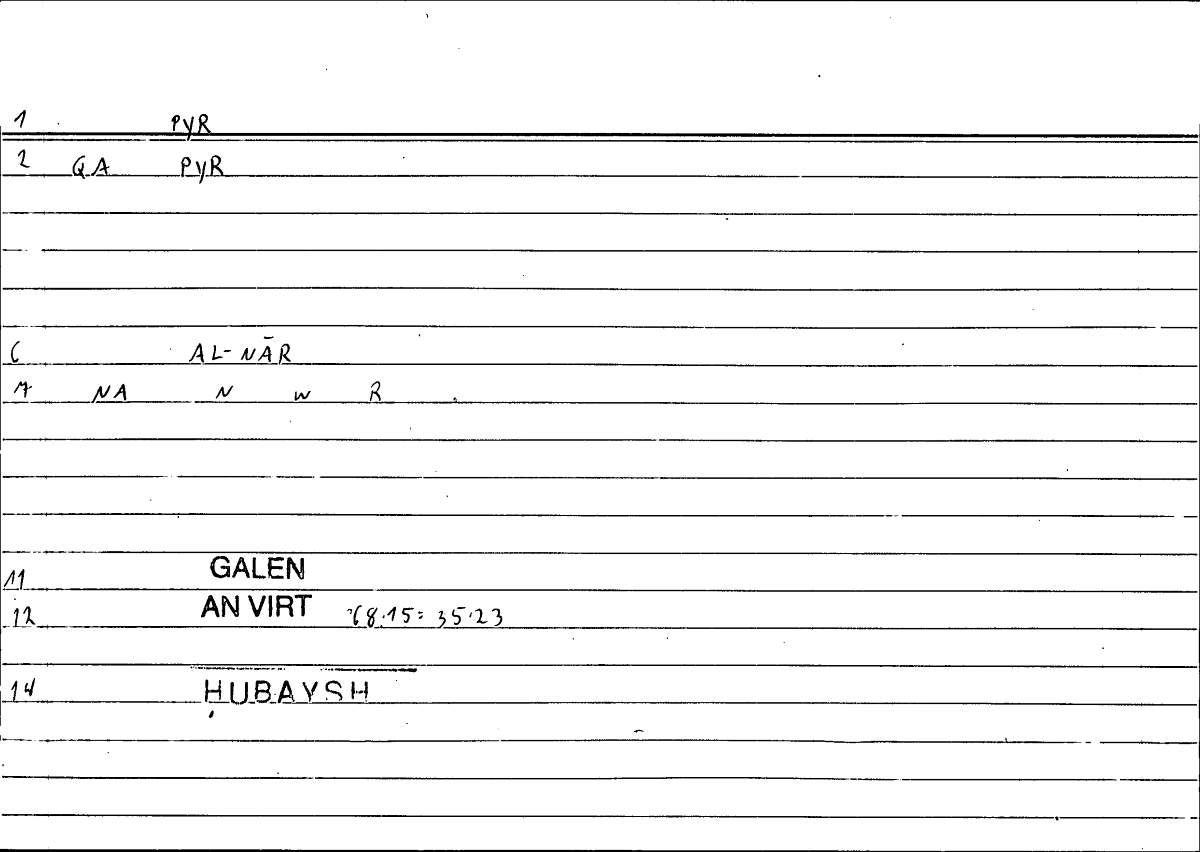 1 PyR
2 QA PyR
6 AL-NĀR
7 NA N w R
11 GALEN
12 AN VIRT 68.15= 35.23
14 ḤUBAYSH